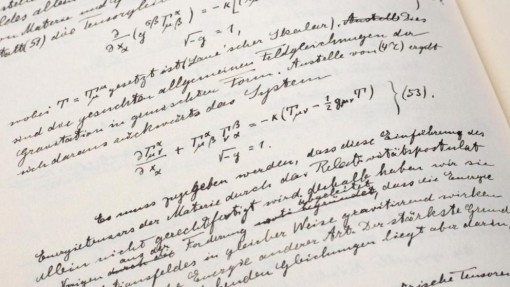 von Materie und
statt (51) die
∂/∂x_α (g^{σβ} Γ^α_{μβ}) = -κ[(T
√-g = 1.
wobei T = T^α_α gesetzt ist (Laue'scher Skalar). Dies
sind die gesuchten allgemeinen Feldgleichungen der
Gravitation in gemischter Form. Anstelle von (47) ergibt
sich daraus rückwärts das System
∂Γ^α_{μν}/∂x_α + Γ^α_{μβ} Γ^β_{να} = -κ(T_{μν} - ½ g_{μν} T) } (53).
√-g = 1.
Es muss zugegeben werden, dass diese Einführung des
Energietensors der Materie durch das Relativitätspostulat
allein nicht gerechtfertigt wird; deshalb haben wir sie
im Vorigen aus der Forderung abgeleitet, dass die Energie
des Gravitationsfeldes in gleicher Weise gravitierend wirken
Energie anderer Art. Der stärkste Grund
Gleichungen liegt aber darin,
Tensoren